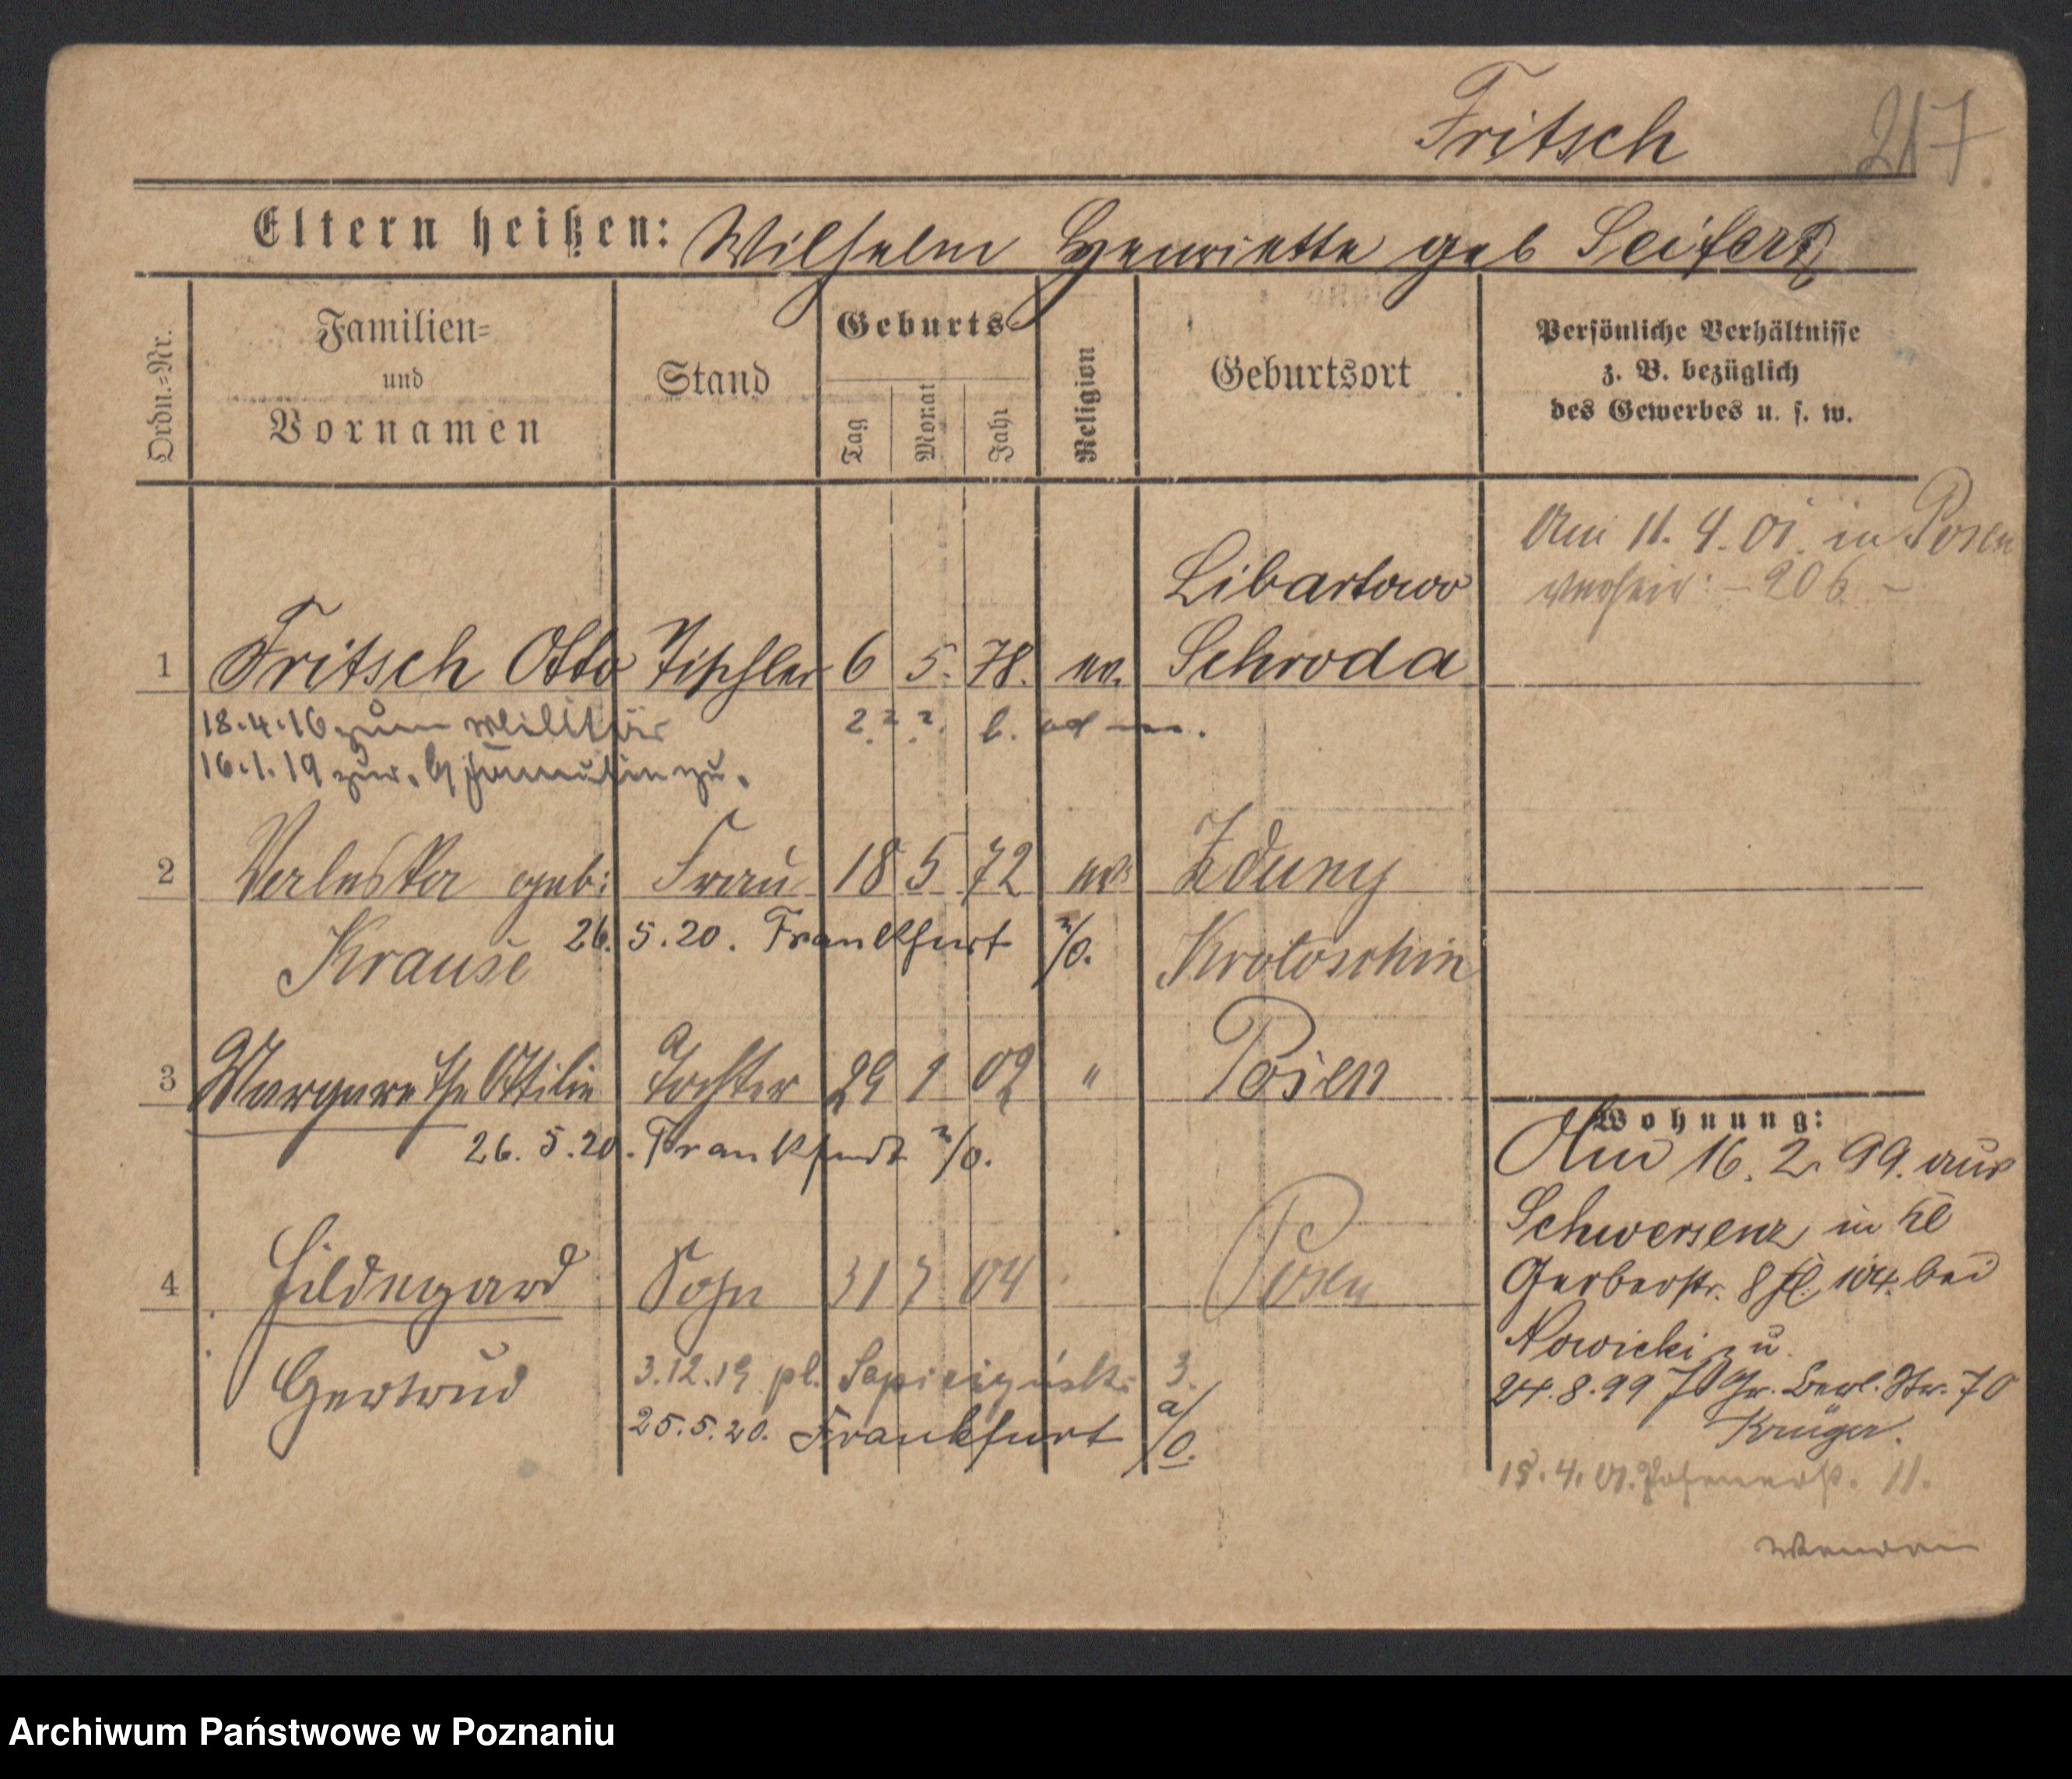 Fritsch 217
Eltern heißen: Wilhelm Henriette geb Seifert
Ordn.=Nr.
Familien=
und
Vornamen
Stand
Geburts
Tag
Monat
Jahr
Religion
Geburtsort
Persönliche Verhältnisse
z. B. bezüglich
des Gewerbes u. s. w.
Am 11. 4. 01. in Posen
verheir: - 206 -
Libartowo
1 Fritsch Otto Tischler 6 5. 78. ev. Schroda
18.4.16 zum Militär
16.1.19 zur.
2 Valeska geb: Frau 18 5 72 ev. Zduny
Krause 26. 5.20. Frankfurt a/O. Krotoschin
3 Margarethe Ottilie Tochter 29 1 02 " Posen
26. 5.20. Frankfurt a/O.
4 Hildegard Sohn 31 7 04 Posen
Gertrud 3.12.19 pl. 3.
25.5.20. Frankfurt a/O.
Wohnung:
Am 16. 2. 99. aus
Schwersenz in Kl
Gerberstr. 8 bei
Nowicki
24.8.99 Gr. Berl. Str. 70
Krüger.
15.4.01. 11.
Wenden